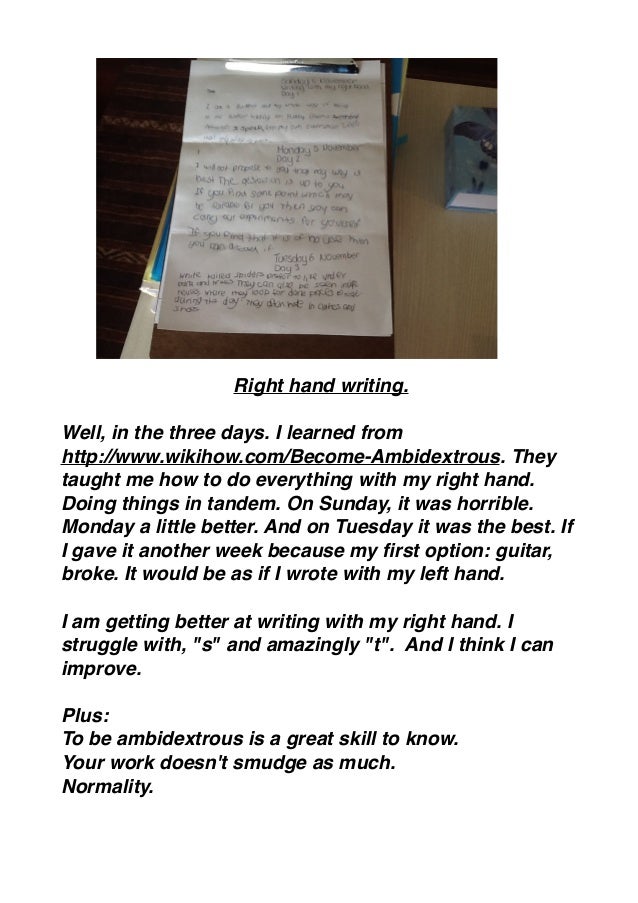 Sunday 5 November
Writing with my right hand
Day 1
I am a
Monday 5 November
Day 2
I will not propose to you that my way is
best The decision is up to you
If you find some point which may
be for you Then you can
carry our experiments for yourself
If you find that it is of no use then
you can discard it
Tuesday 6 November
Day 3
White tailed spiders prefer to live under
and They can also be seen
houses where may look for
during the day They hide in clothes and
shoes
Right hand writing.
Well, in the three days. I learned from
http://www.wikihow.com/Become-Ambidextrous. They
taught me how to do everything with my right hand.
Doing things in tandem. On Sunday, it was horrible.
Monday a little better. And on Tuesday it was the best. If
I gave it another week because my first option: guitar,
broke. It would be as if I wrote with my left hand.
I am getting better at writing with my right hand. I
struggle with, "s" and amazingly "t".  And I think I can
improve.
Plus:
To be ambidextrous is a great skill to know.
Your work doesn't smudge as much.
Normality.